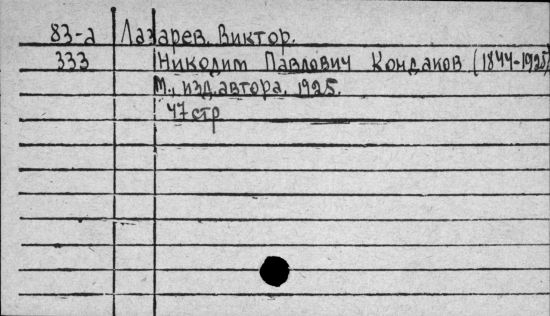 83-а Лазарев, Виктор.
333 Никодим Павлович Кондаков (1844-1925)
М., изд. автора, 1925.
47 стр